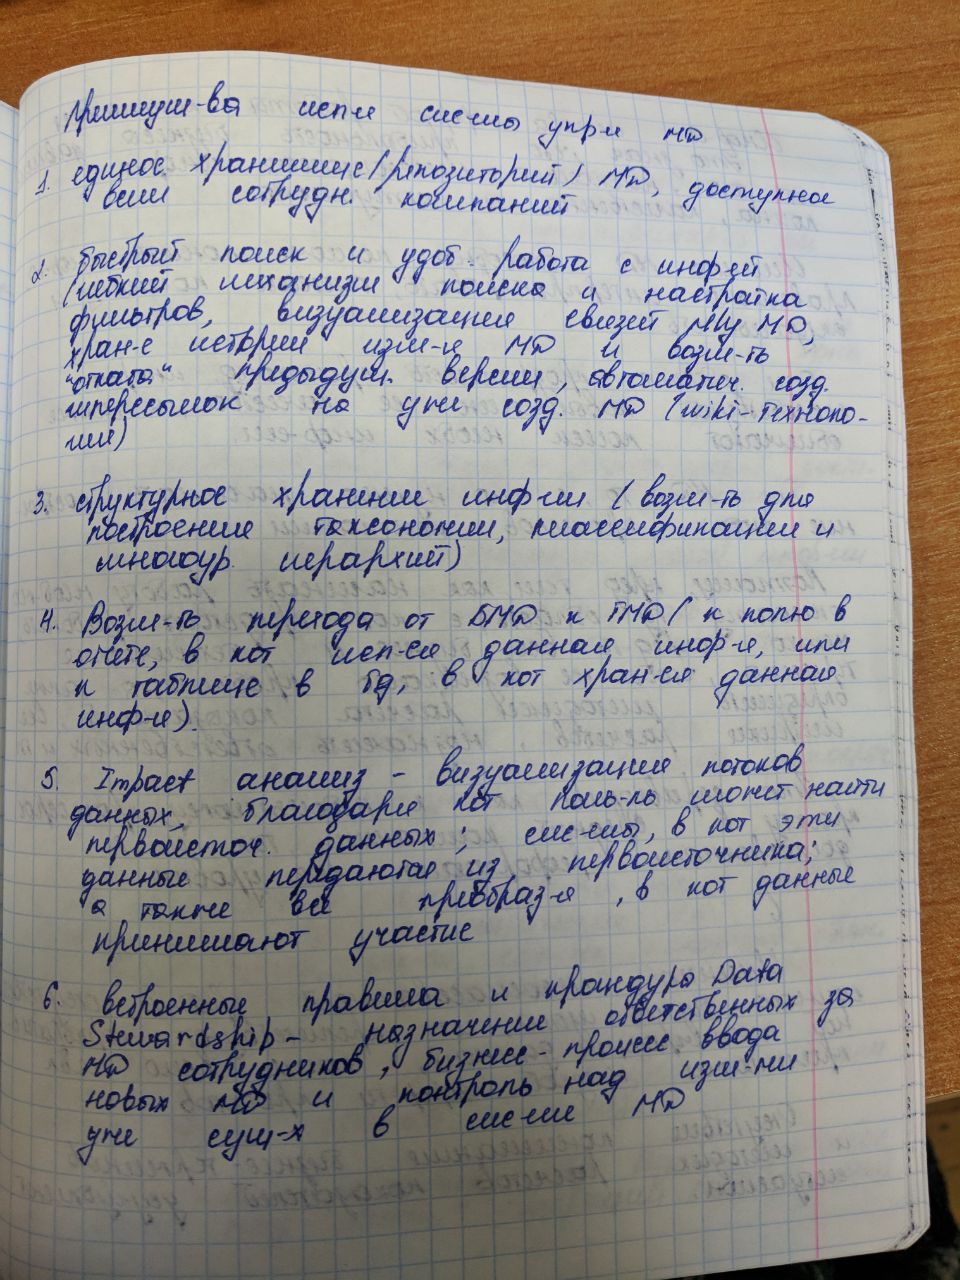 Преимущ-ва исп-я системы упр-я МД
1. единое хранилище (репозиторий) МД, доступное
всем сотрудн. компаний
2. быстрый поиск и удоб. работа с инф-ей
(гибкий механизм поиска и настройка
фильтров, визуализация связей м/у МД,
хран-е истории изм-я МД и возм-ть
"отката" предыдущ. версии, автоматич. созд.
гиперссылок на уже созд. МД (wiki-техноло-
гии)
3. структурное хранение инф-ии (возм-ть для
построения таксономии, классификации и
многоур. иерархий)
4. Возм-ть перехода от БМД к ТМД (к полю в
отчете, в кот исп-ся данная инф-я, или
к таблице в бд, в кот хран-ся данная
инф-я).
5. Impact анализ - визуализация потоков
данных, благодаря кот поль-ль может найти
первоисточ. данных; сис-мы, в кот эти
данные передаются из первоисточника;
а также все преобраз-я, в кот данные
принимают участие
6. встроенные правила и процедуры Data
Stewardship - назначение ответственных за
МД сотрудников, бизнес-процесс ввода
новых МД и контроль над изм-ми
уже сущ-х в сис-ме МД